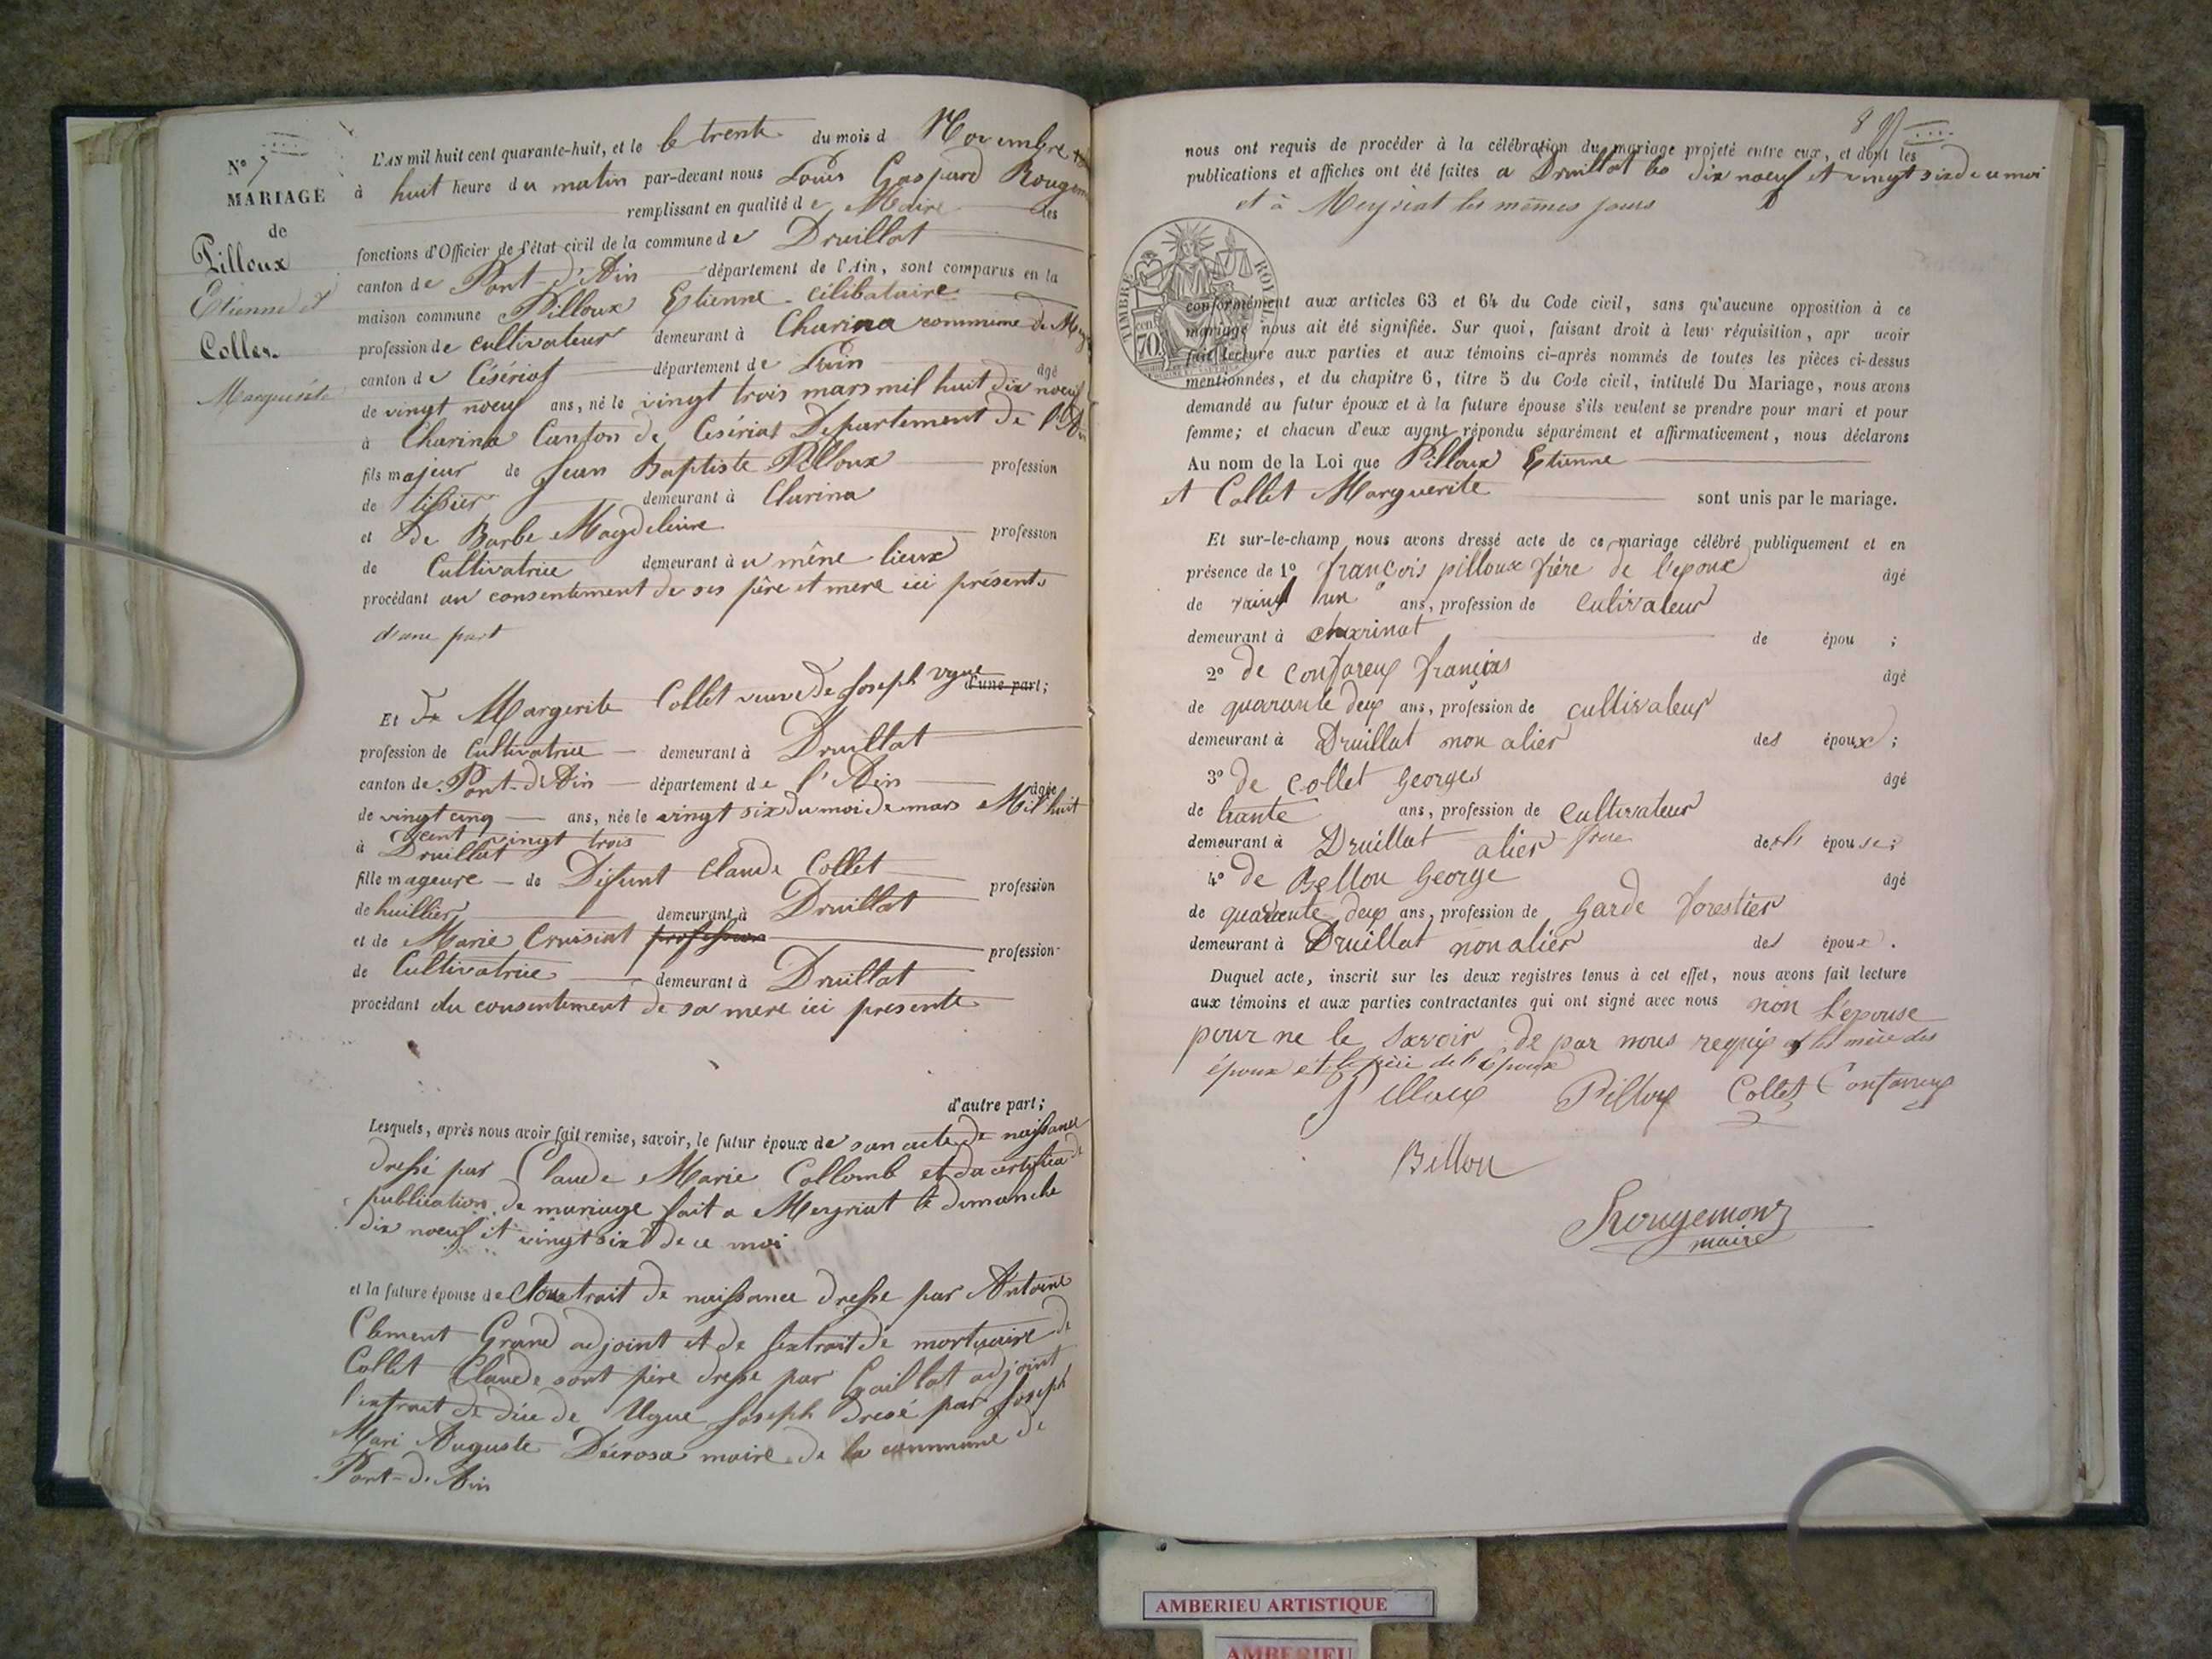 N° 7
MARIAGE
de
Pilloux
Etienne et
Collet
Marguerite
L'AN mil huit cent quarante-huit, et le le trente du mois d Novembre
à huit heure du matin par-devant nous Louis Gaspard Rougem
remplissant en qualité de Maire des
fonctions d'Officier de l'état civil de la commune de Druillat
canton de Pont-d'Ain département de l'Ain, sont comparus en la
maison commune Pilloux Etienne célibataire
profession de cultivateur demeurant à Charina commune de Mey
canton de Césériat département de Lain âgé
de vingt noeuf ans, né le vingt trois mars mil huit dix noeuf
à Charina Canton de Césériat Département de l'Ain
fils majeur de Jean Baptiste Pilloux profession
de tissier demeurant à Charina
et de Barbe Magdeleine profession
de Cultivatrice demeurant à u même lieux
procédant au consentement de ses père et mere ici présents
d'une part
d'une part;
Et de Margerite Collet veuve de Joseph ugue
profession de Cultivatrice demeurant à Druillat
canton de Pont-d'Ain département de l'Ain âgée
de vingt cinq ans, née le vingt six du moi de mars Mil huit
cent vingt trois
à Druillat
fille mageure de Défunt Claude Collet profession
de huillier demeurant à Druillat
et de Marie Cruisiat profession profession
de Cultivatrice demeurant à Druillat
procédant du consentement de sa mere ici presente
d'autre part;
Lesquels, après nous avoir fait remise, savoir, le futur époux de son acte de naissance
dressé par Claude Marie Collomb et du certifica de
publication de mariage fait a Meyriat le dimanche
dix noeuf et vingt six de ce moi
et la future épouse de trait de naissance dresse par Antoine
Clement Grand adjoint et de lextrait de mortuaire de
Collet Claude sont père dresse par Gaillat adjoint
l'extrait de dée de Ugue Joseph dresé par Joseph
Mari Auguste Decrosa maire de la commune de
Pont-d'Ain
8
nous ont requis de procéder à la célébration du mariage projeté entre eux, et dont les
publications et affiches ont été faites a Druillat les dix noeuf et vingt six de u moi
et à Meyriat les mêmes jours
TIMBRE ROYAL
70 cent
conformément aux articles 63 et 64 du Code civil, sans qu'aucune opposition à ce
mariage nous ait été signifiée. Sur quoi, faisant droit à leur réquisition, apr avoir
fait lecture aux parties et aux témoins ci-après nommés de toutes les pièces ci-dessus
mentionnées, et du chapitre 6, titre 5 du Code civil, intitulé Du Mariage, nous avons
demandé au futur époux et à la future épouse s'ils veulent se prendre pour mari et pour
femme; et chacun d'eux ayant répondu séparément et affirmativement, nous déclarons
Au nom de la Loi que Pilloux Etienne
et Collet Marguerite sont unis par le mariage.
Et sur-le-champ nous avons dressé acte de ce mariage célébré publiquement et en
présence de 1° françois pilloux frére de l'epoux âgé
de vaint un ans, profession de culivateur
demeurant à charinat de épou ;
2° de confareux françois âgé
de quarante deux ans, profession de cultivateur
demeurant à Druillat non alier des époux ;
3° de collet Georges âgé
de trante ans, profession de cultivateur
demeurant à Druillat alier frere de l' épouse;
4° de Bellon George âgé
de quarante deux ans, profession de Garde forestier
demeurant à Druillat non alier des époux .
Duquel acte, inscrit sur les deux registres tenus à cet effet, nous avons fait lecture
aux témoins et aux parties contractantes qui ont signé avec nous non l'épouse
pour ne le savoir de par nous requis et les mère des
époux et le père de l'époux
Pilloux Pilloux Collet Confareux
Billon
Rougemont
maire
AMBERIEU ARTISTIQUE
AMBERIEU